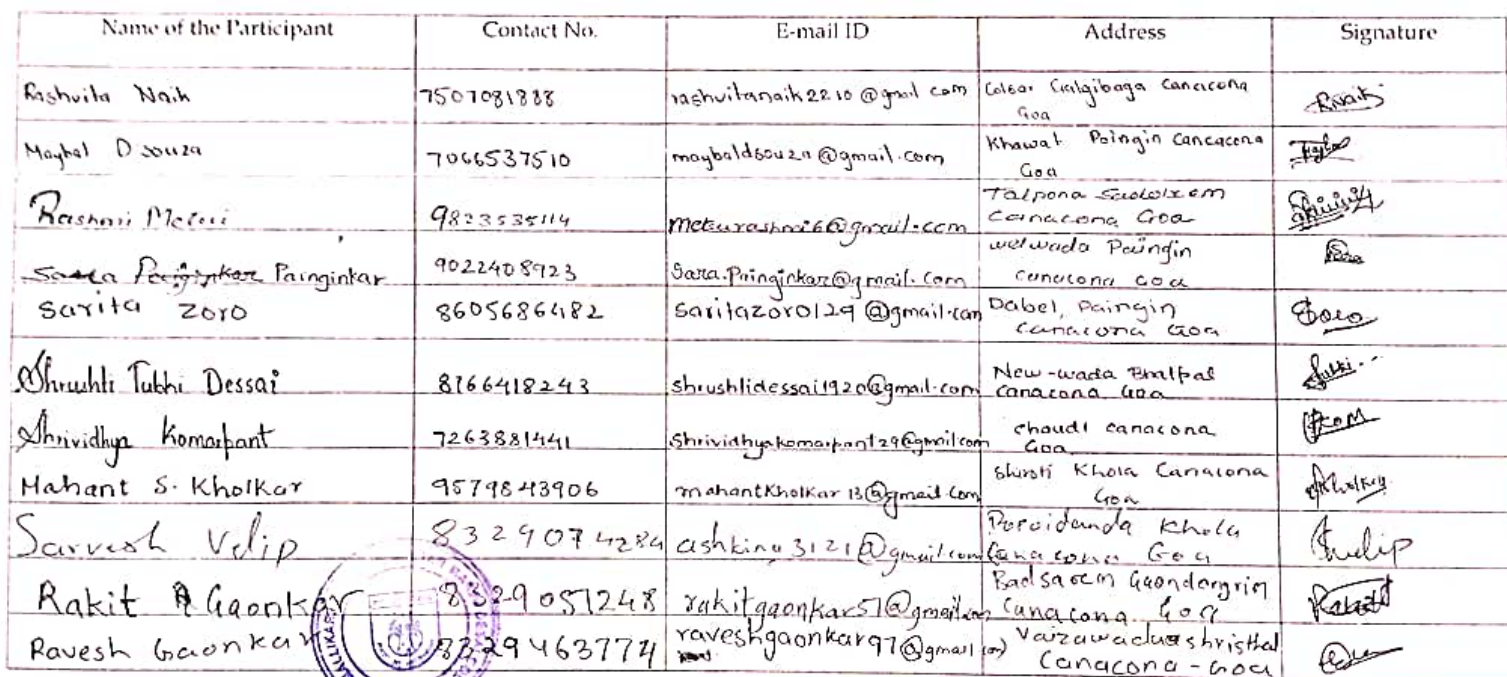 Name of the Participant Contact No. E-mail ID Address Signature
Rashvita Naik 7507081888 rashvitanaik2210@gmail.com Colsor Galgibaga Canacona
Goa
Maybal Dsouza 7066537510 maybaldsouza@gmail.com Khawat Poingin Cancacona
Goa
Rashmi Meturi 9823535114 meturashmi6@gmail.com Talpona Sadolxem
Canacona Goa
Painginkar 9022408923 Sara.Painginkar@gmail.com welwada Paingin
canacona Goa
Sarita Zoro 8605686482 saritazoro129@gmail.com Dabel, Paingin
Canacona Goa
Shrushti Tubki Dessai 8766418243 shrushtidessai1920@gmail.com New-wada Bhatpal
Canacona Goa
Shrividhya Komarpant 7263881441 Shrividhyakomarpant29@gmail.com chaudi canacona
Goa
Mahant S. Kholkar 9579843906 mahantkholkar13@gmail.com Shiroti Khola Canacona
Goa
Sarvesh Velip 8329074284 Khola
Canacona Goa
Rakit Gaonkar rakitgaonkar51@gmail.com Badsarem Gaondongrim
Canacona Goa
Ravesh Gaonkar 8329463774 raveshgaonkar97@gmail.com shristhal
Canacona - Goa